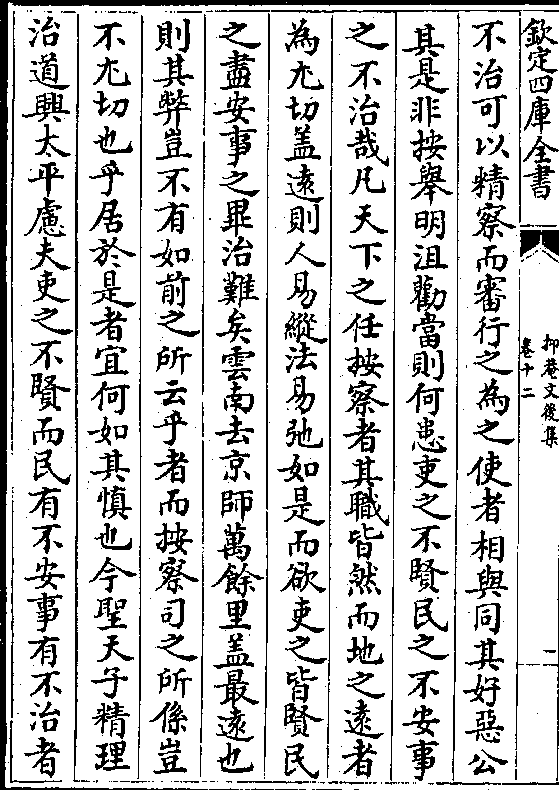 欽定四庫全書
抑菴文後集
卷十二
一
不治可以精察而審行之為之使者相與同其好惡公
其是非按舉明沮勸當則何患吏之不賢民之不安事
之不治哉凡天下之任按察者其職皆然而地之遠者
為尤切盖遠則人易縱法易弛如是而欲吏之皆賢民
之盡安事之畢治難矣雲南去京師萬餘里盖最遠也
則其弊豈不有如前之所云乎者而按察司之所係豈
不尤切也乎居於是者宜何如其慎也今聖天子精理
治道興太平慮夫吏之不賢而民有不安事有不治者